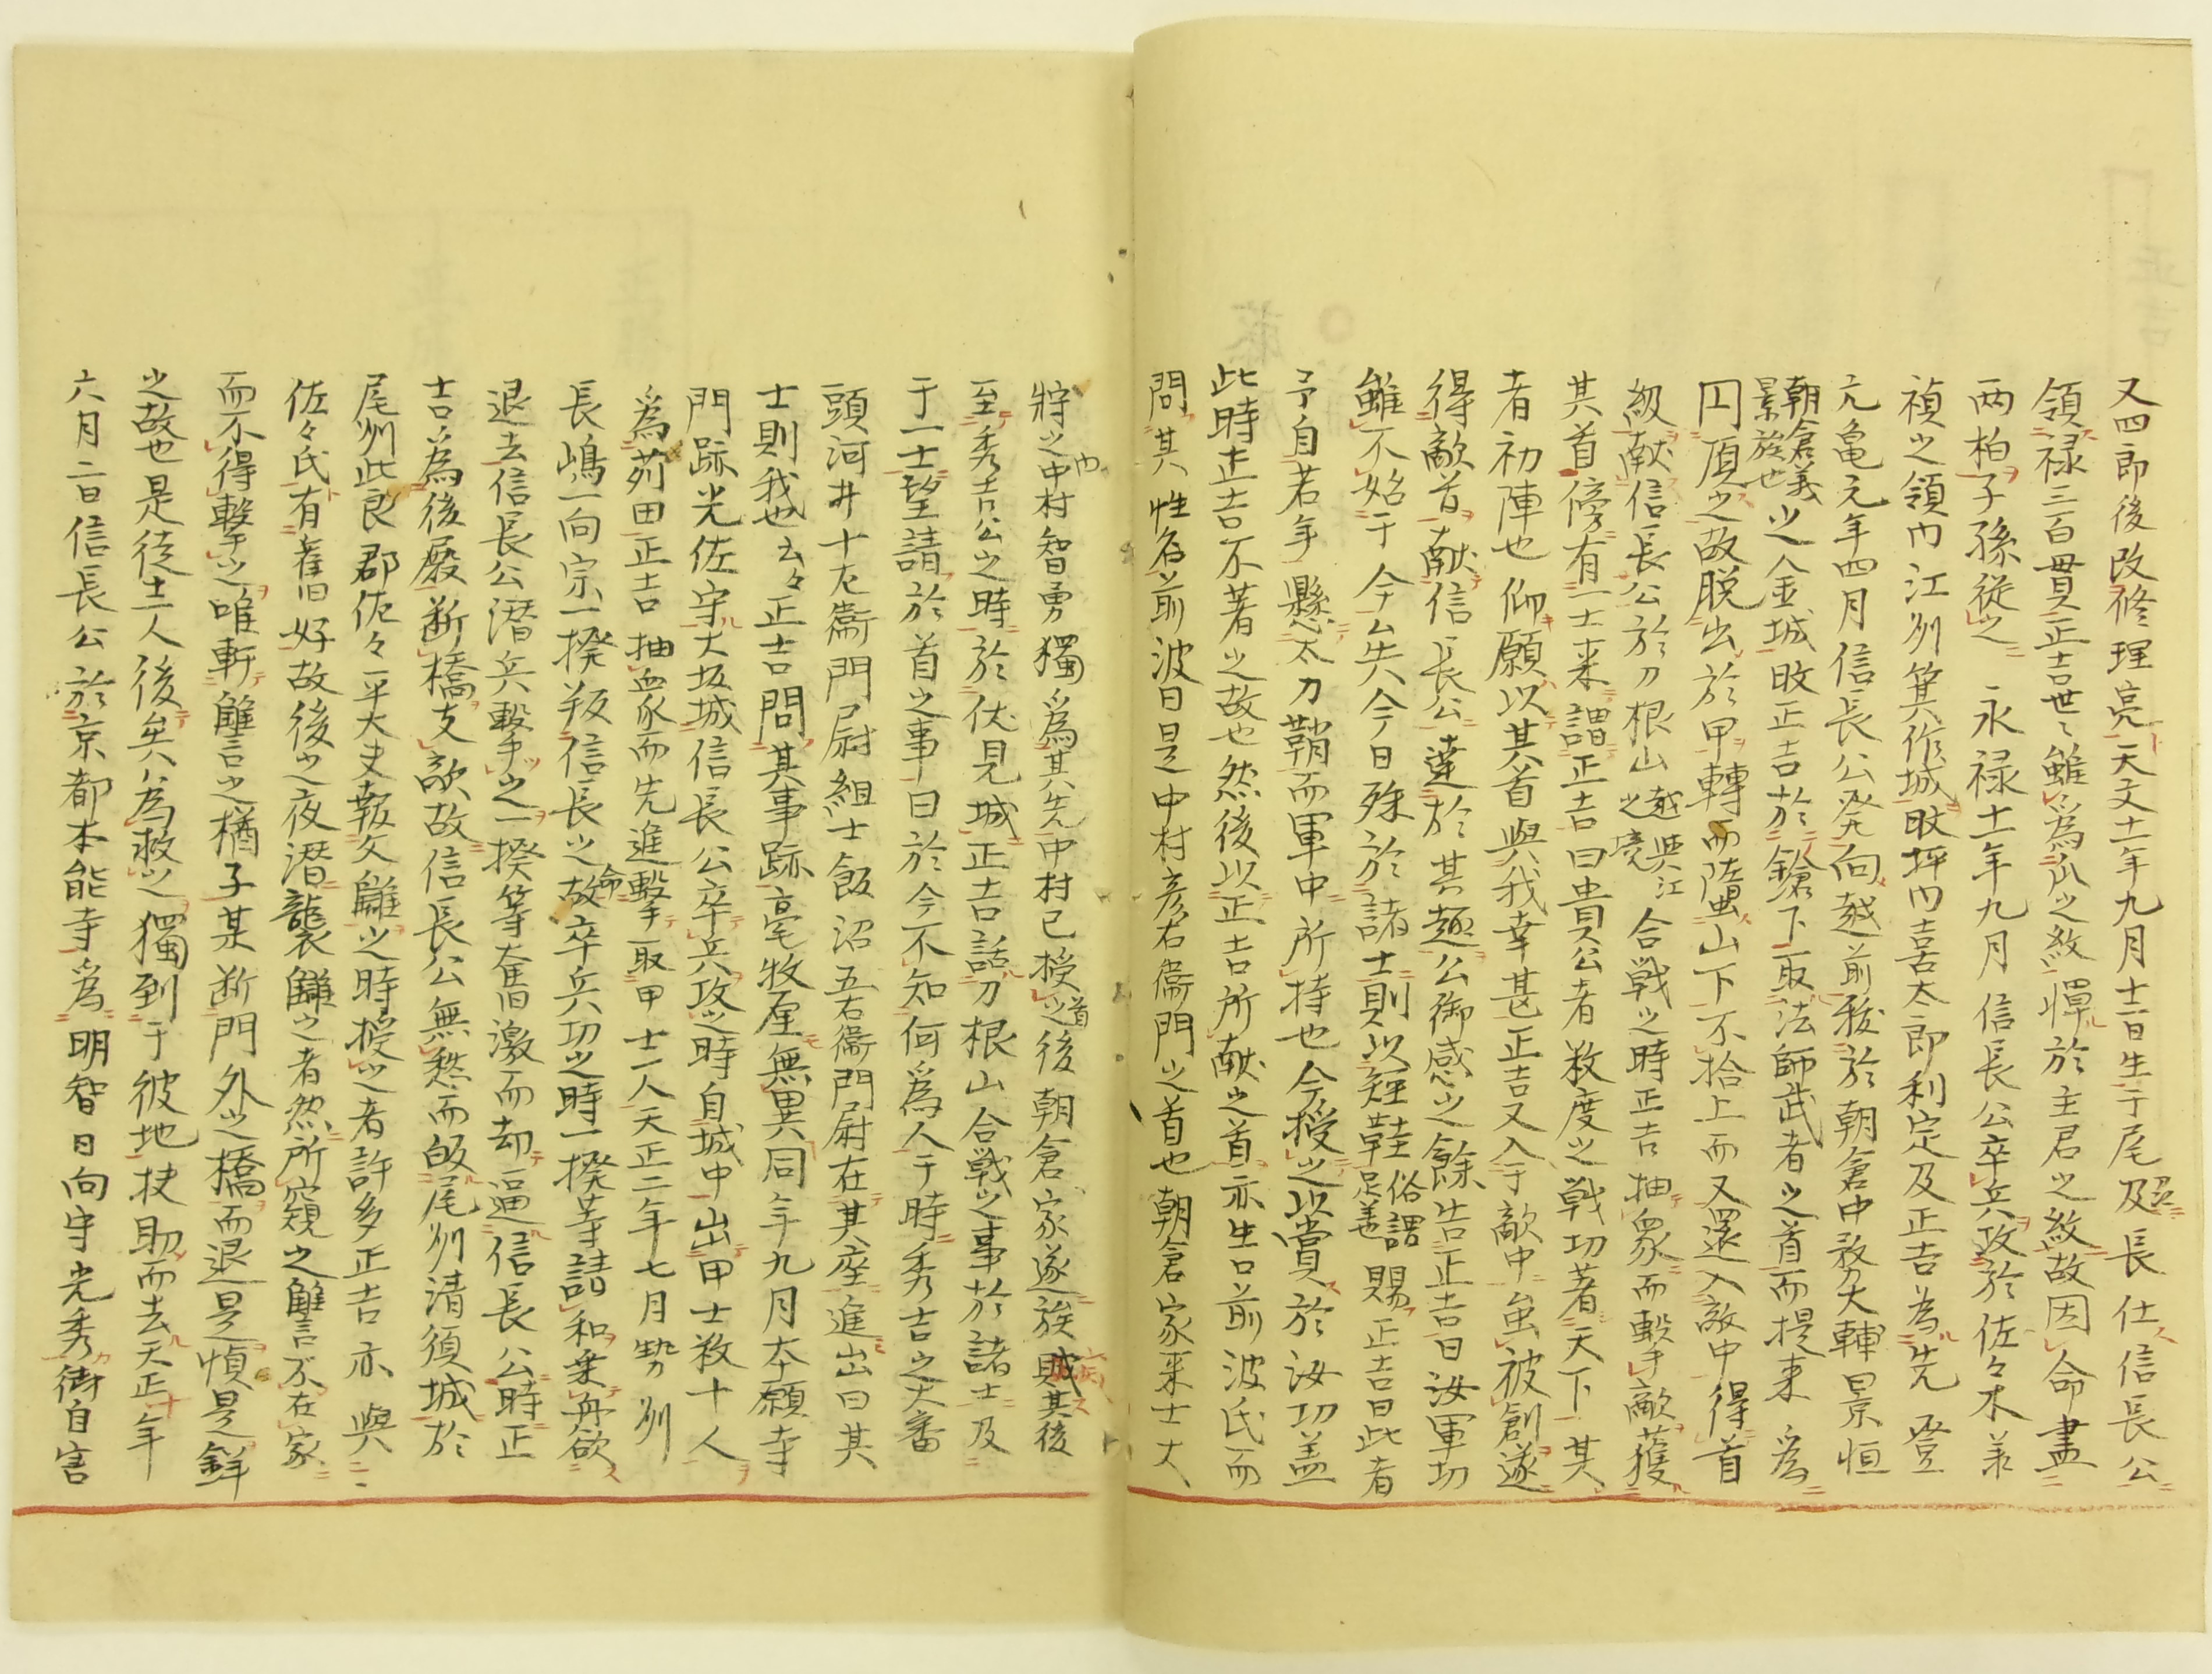 又四郎後改修理亮天文十一年九月十一日生于尾刕及長仕信長公
領禄三百貫正吉世々雖為爪之紋憚於主君之紋故因命畫
両柏子孫従之　永禄十一年九月信長公卒兵攻於佐々木羕
禎之領内江刕箕作城時坪内喜太郎利定及正吉為先登
元亀元年四月信長公発向越前殺於朝倉中務大輔景恒
朝倉義景族也之金城時正吉於鎗下取法師武者之首而提来為
円頂之故脱出於甲轉而墮山下不拾上而又還入敵中得首
級献信長公於刀根山越與江之境合戦之時正吉抽衆而撃敵獲
其首傍有一士来謂正吉曰貴公者数度之戦切著天下其
者初陣也仰願以其首與我幸甚正吉又入于敵中虽被創遂
得敵首献信長公達於其趣公御感之餘告正吉曰汝軍切
雖不始于今矣今日殊於諸士則以短鞋俗謂足善賜正吉曰此者
予自若年懸太刀鞘而軍中所持也今授之以賞於汝切盖
此時正吉不著之故也然後以正吉所献之首示生口前波氏而
問其性名前波曰是中村彦右衛門之首也朝倉家来士大
将之中村智勇獨為其先中村已授首之後朝倉家遂族賊其後
至秀吉公之時於伏見城正吉話刀根山合戦之事於諸士及
于一士望請於首之事曰於今不知何為人于時秀吉之大番
頭河井十左衛門尉組士飯沼五右衛門尉在其座進出曰其
士則我也云々正吉問其事跡毫牧厘無異同年九月本願寺
門跡光佐守大坂城信長公卒兵攻之時自城中出甲士数十人
為苅田正吉抽血衆而先進命撃取甲士一人天正二年七月勢刕
長嶋一向宗一揆叛信長之故卒兵切之時一揆等請和乗舟欲
退去信長公潜兵撃之一揆等奮激而却逼信長公時正
吉為後殿断橋支敵故信長公無愁而皈尾刕清須城於
尾刕此良郡佐々平太夫報父讎之時授之者許多正吉亦與
佐々氏有舊好故後之夜潜襲讎之者然所窺之讎言不在家
而不得撃之唯斬讎言之楢子某断門外之橋而退是慎是鋅
之故也是徒士一人後矣公為救之獨到于彼地扶助而去天正十年
六月二日信長公於京都本能寺為明智日向守光秀御自害